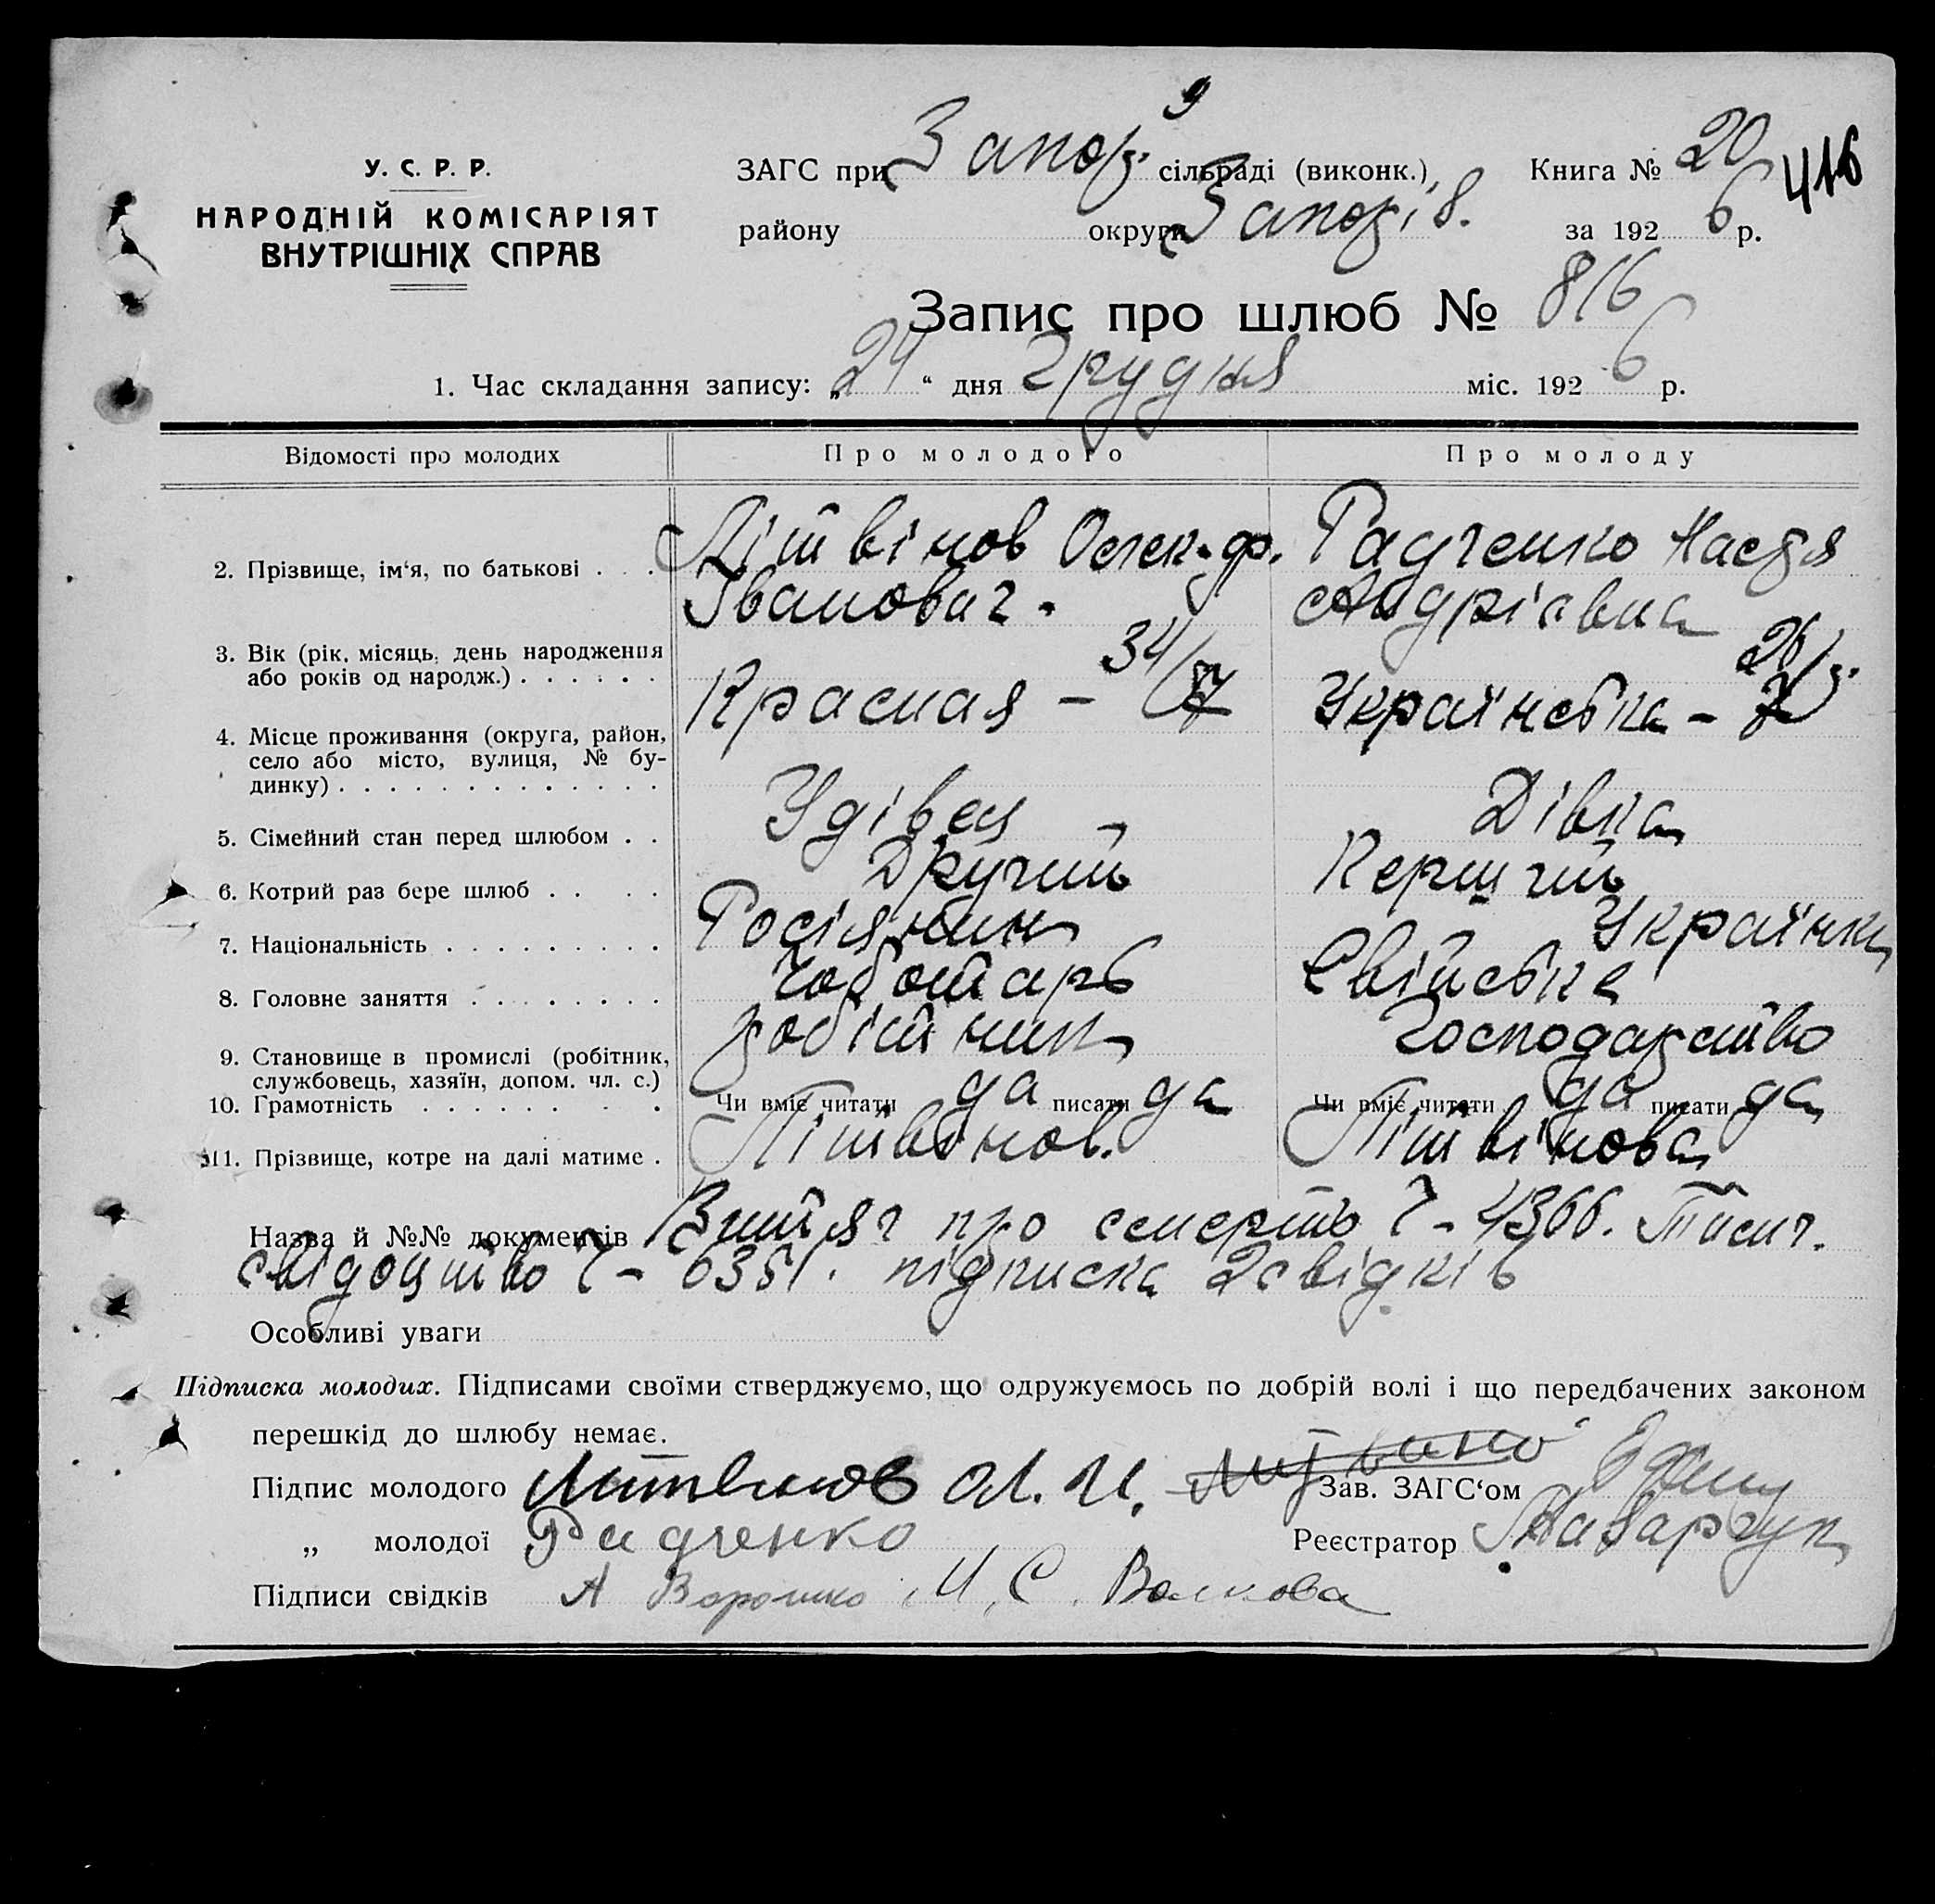 9
У. С. Р. Р.
НАРОДНІЙ КОМІСАРІЯТ
ВНУТРІШНІХ СПРАВ
ЗАГС при Запор. сільраді (виконк.) Книга № 20 416
району округи Запорів. за 1926 р.
Запис про шлюб № 816
1. Час складання запису: „24“ дня Грудня міс. 1926 р.
Відомості про молодих Про молодого Про молоду
2. Прізвище, ім‘я, по батькові . . . Літвінов Олек-др. Іванович. Радченко Настя Андрієвна
3. Вік (рік, місяць, день народження або років од народж.) . . . . . . 34 26
4. Місце проживання (округа, район, село або місто, вулиця, № будинку) . . . . . . . . . . . . . Красная – Українська –
5. Сімейний стан перед шлюбом . . Удівец – Дівка
6. Котрий раз бере шлюб . . . . Другий Перший
7. Національність . . . . . . . . . Росіянин Українка
8. Головне заняття . . . . . . . . Чоботарь Свійське
9. Становище в промислі (робітник, службовець, хазяїн, допом. чл. с.) робітник господарство
10. Грамотність . . . . . . . Чи вміє читати да писати да Чи вміє читати да писати да
11. Прізвище, котре на далі матиме . Літвінов. Літвінова
Назва й №№ документів Витяг про смерть Ч – 4366.
свідоцтво Ч – 6351. підписка 2 свідків
Особливі уваги
Підписка молодих. Підписами своїми стверджуємо, що одружуємось по добрій волі і що передбачених законом
перешкід до шлюбу немає.
Підпис молодого Литвинов Ал. И. Зав. ЗАГС‘ом
„ молодої Радченко Реєстратор
Підписи свідків А И. С. Волкова